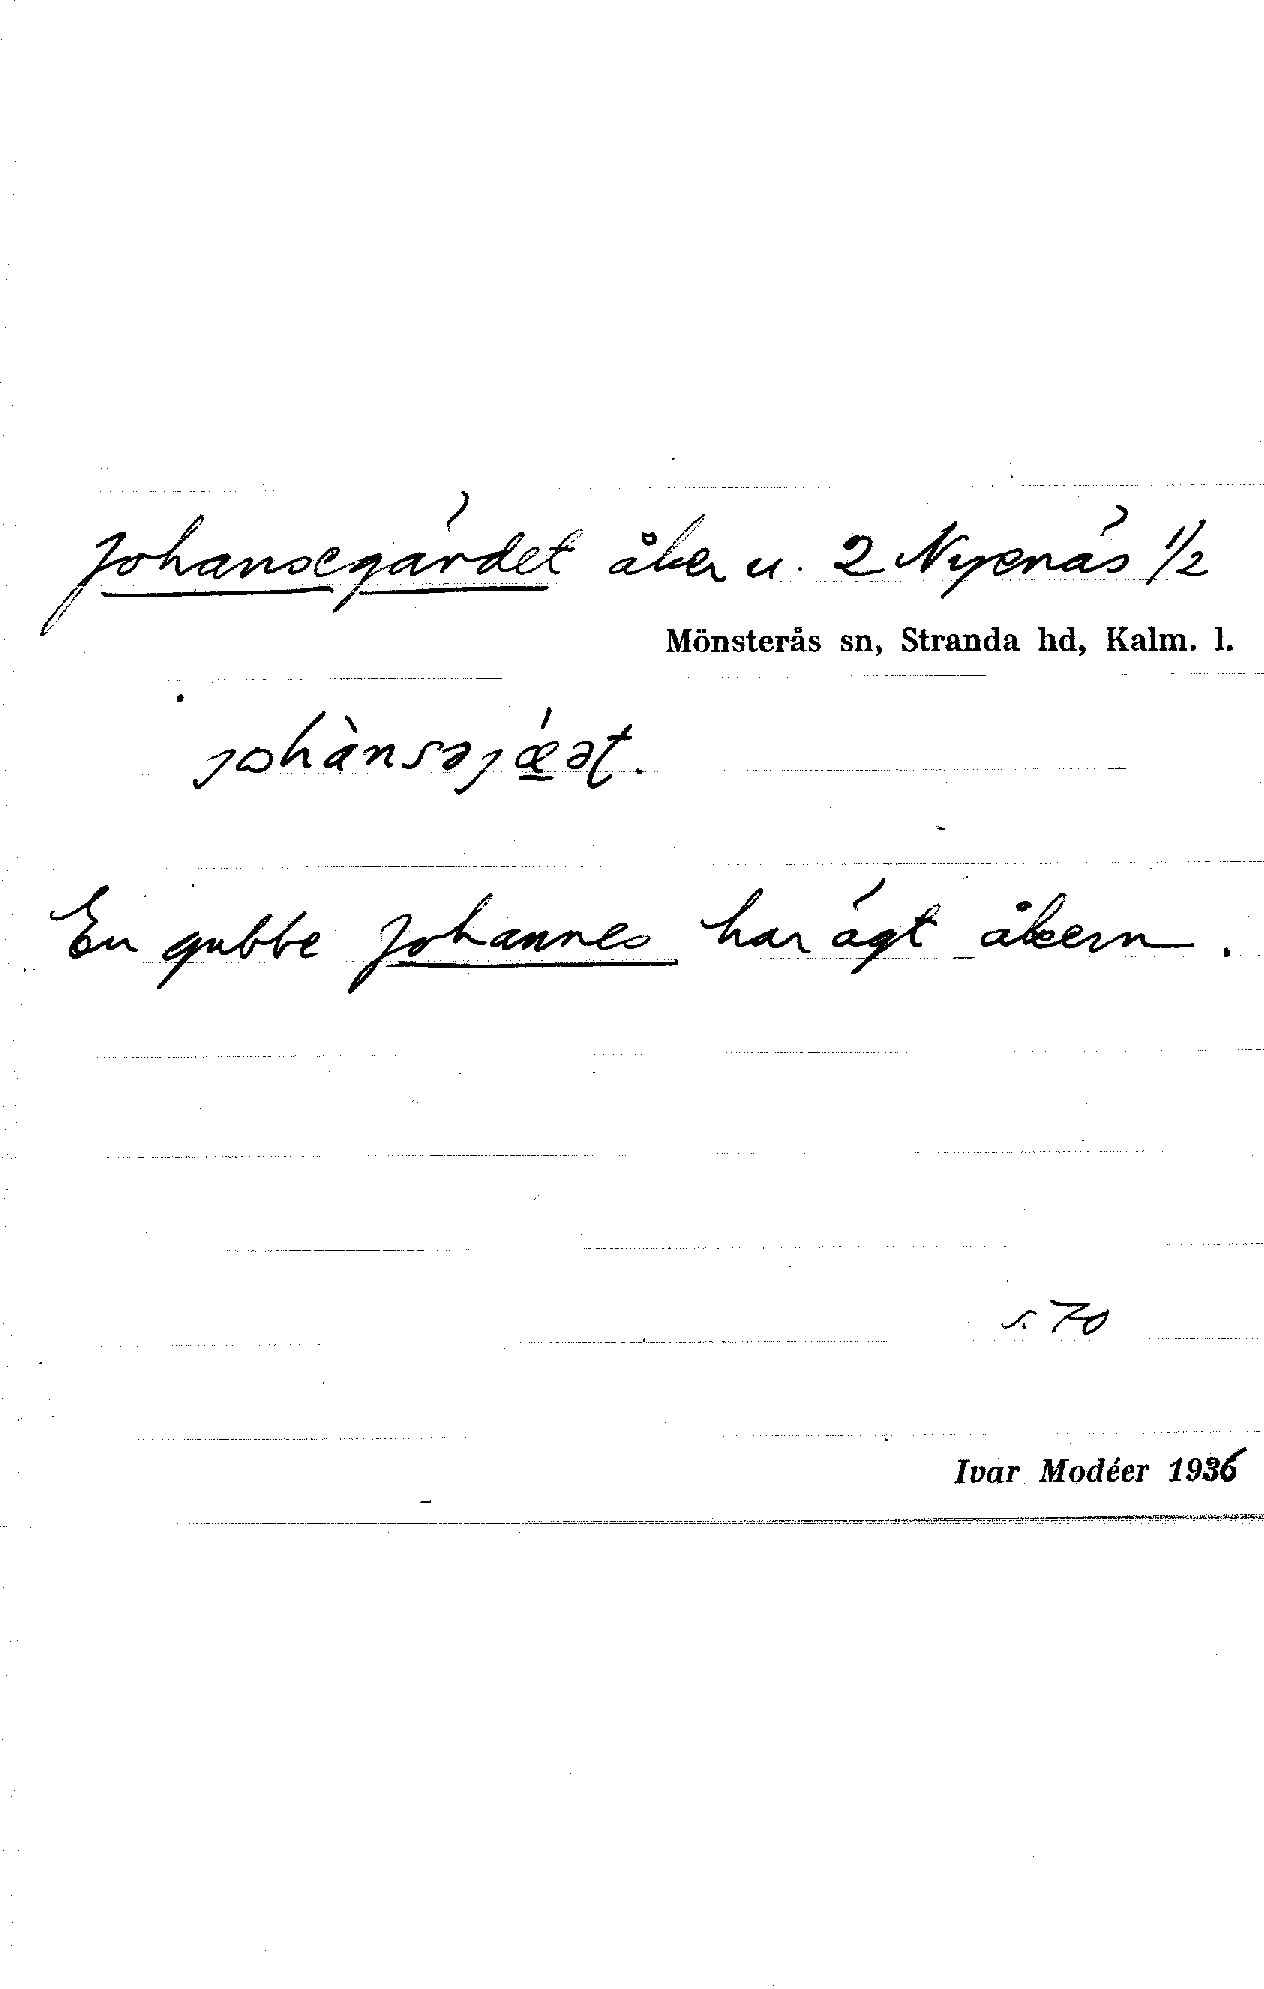 Johansegärdet åker u. 2 Nynäs 1/2
Mönsterås sn, Stranda hd, Kalm. l.
johànsəjǽət.
En gubbe Johannes har ägt åkern.
s. 70
Ivar Modéer 1936